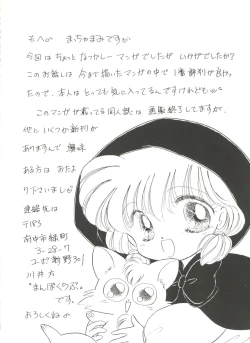 まちゃまみですが
今回は ちょっと なつかしー マンガでしたが いかがでしたか?
このお話しは 今まで描いたマンガの中で 1番評判が良かっ
たので、本人はとっても気に入ってるんですけれども
このマンガが載ってる同人誌は 通販終了してますが、
他に いくつか新刊が
ありますんで 興味
ある方は おたよ
り下さいましな
連絡先は
〒183
府中市緑町
3-
川井方
"まんぼくらぶ"
です。
よろしくね